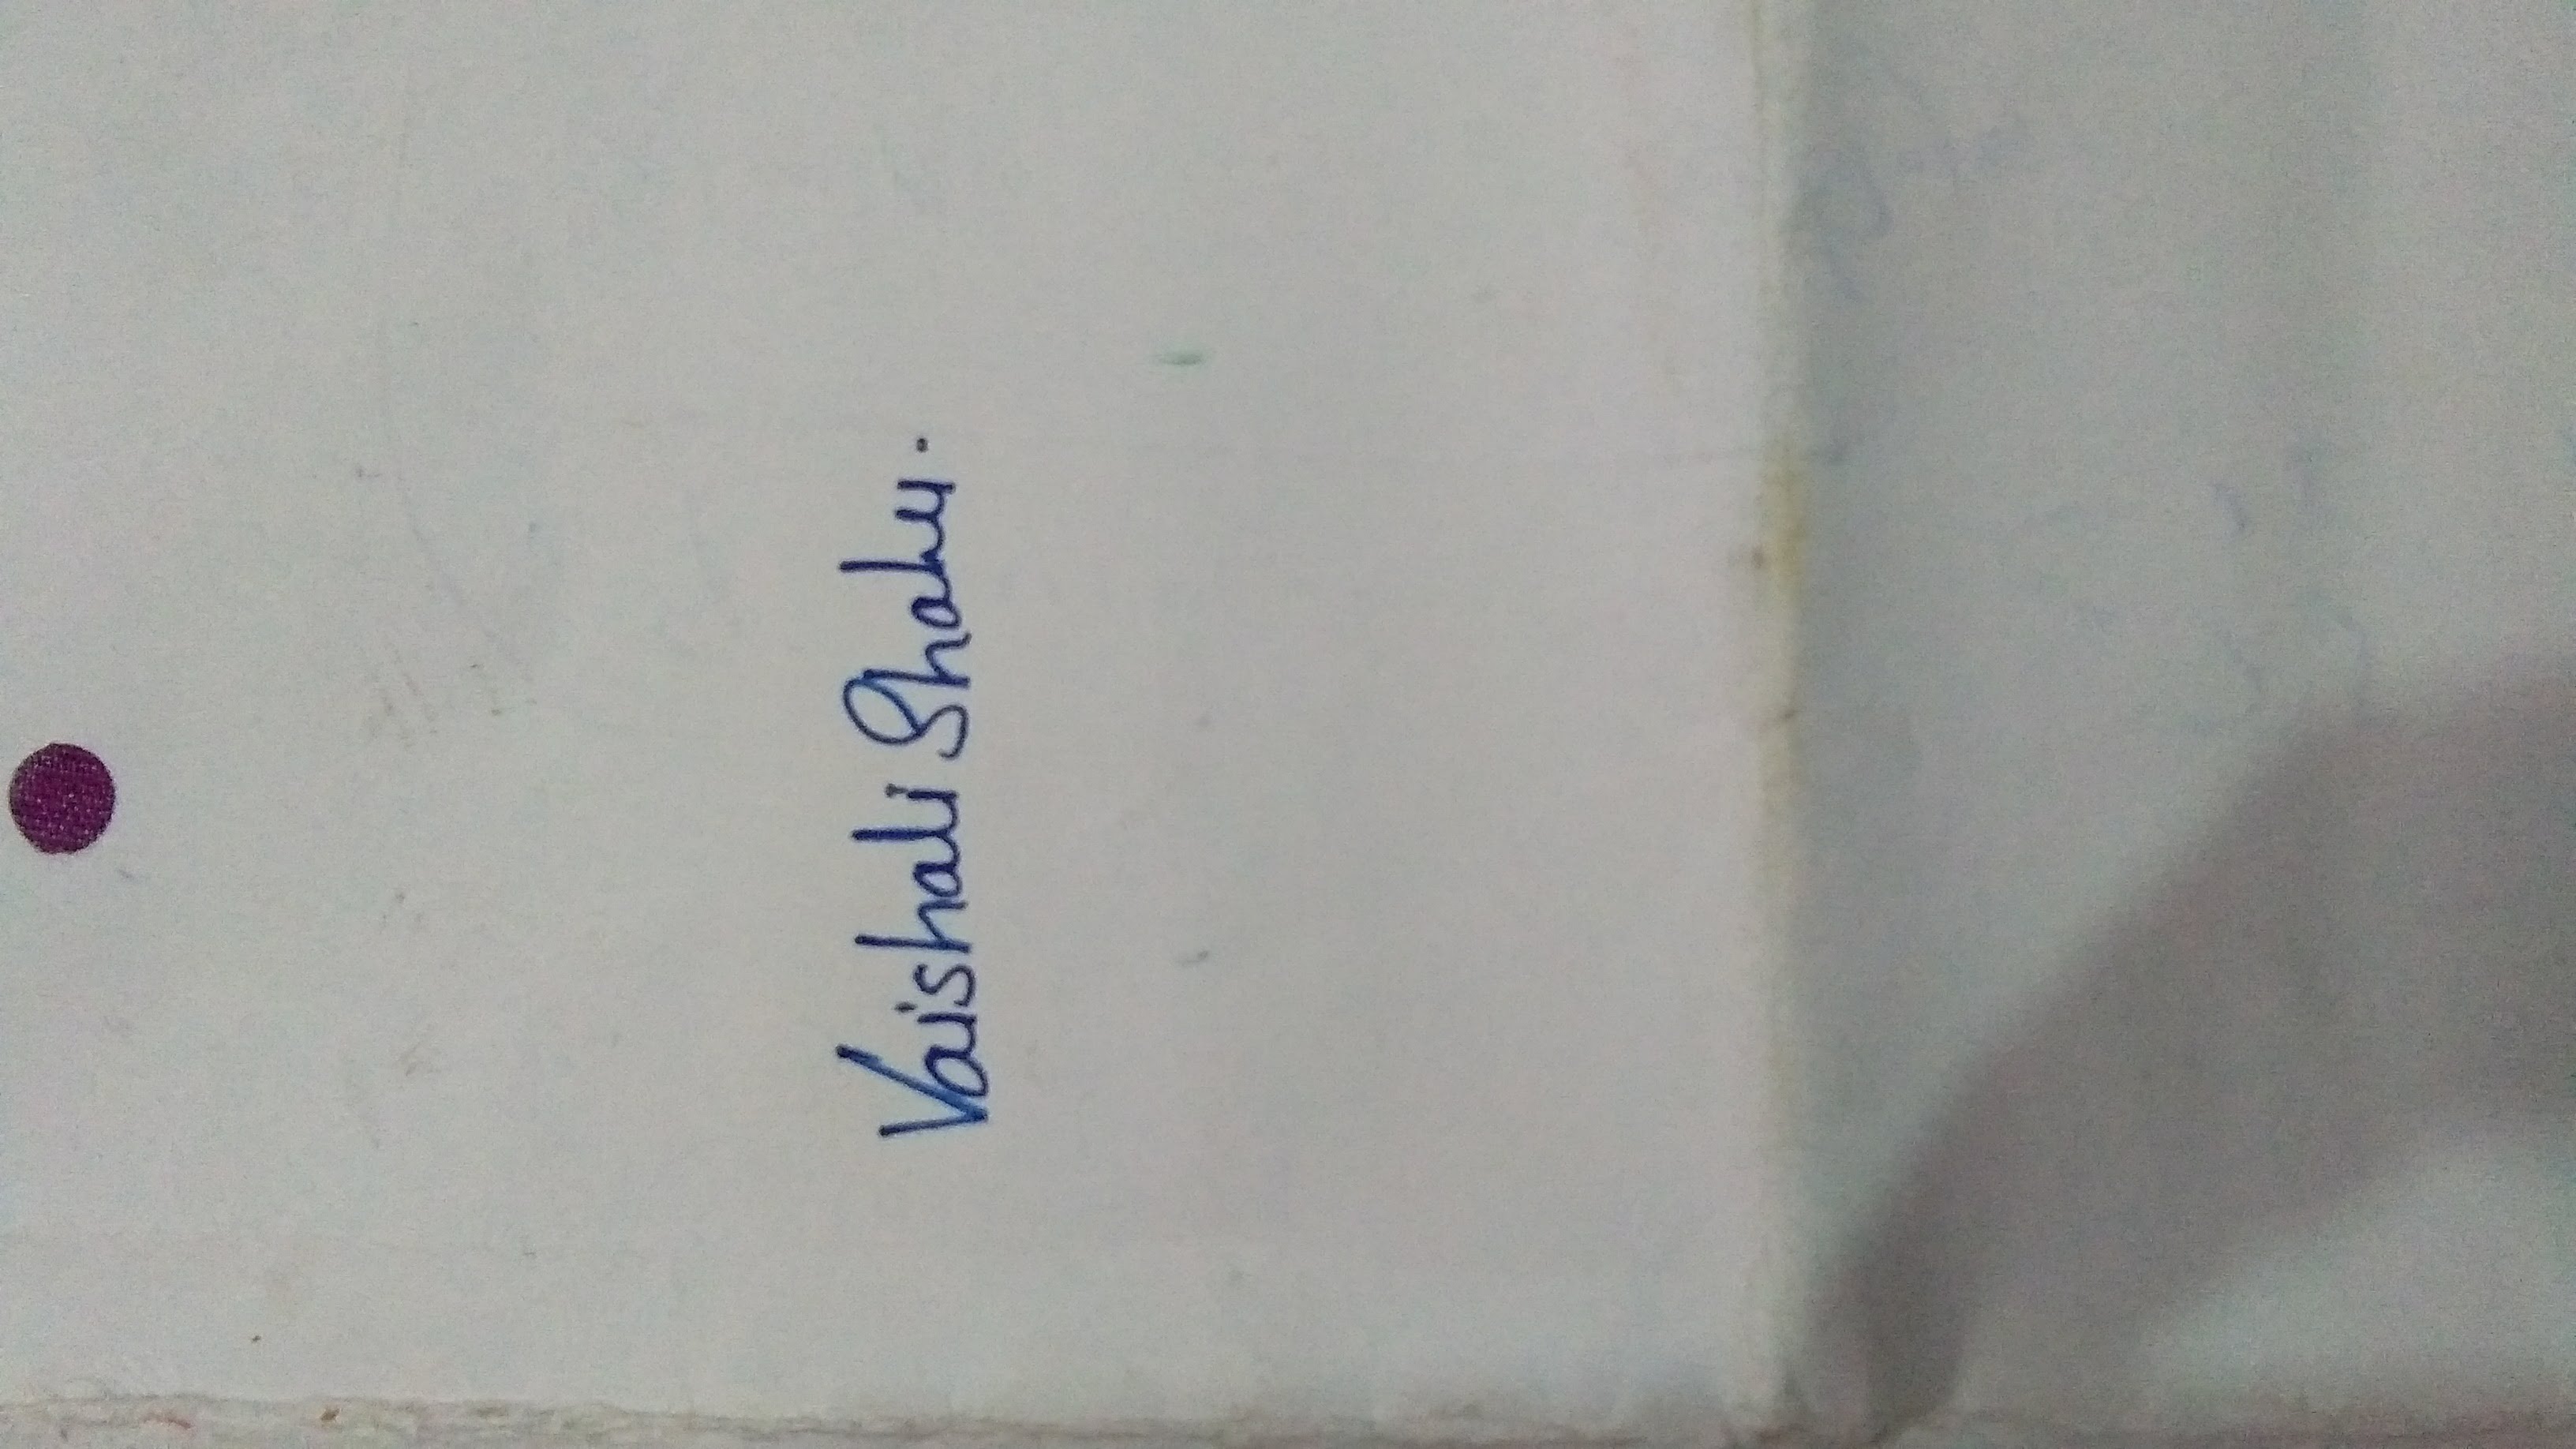 Vaishali Shahu.